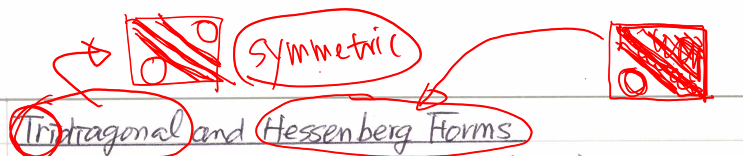 symmetric
Tridiagonal and Hessenberg Forms